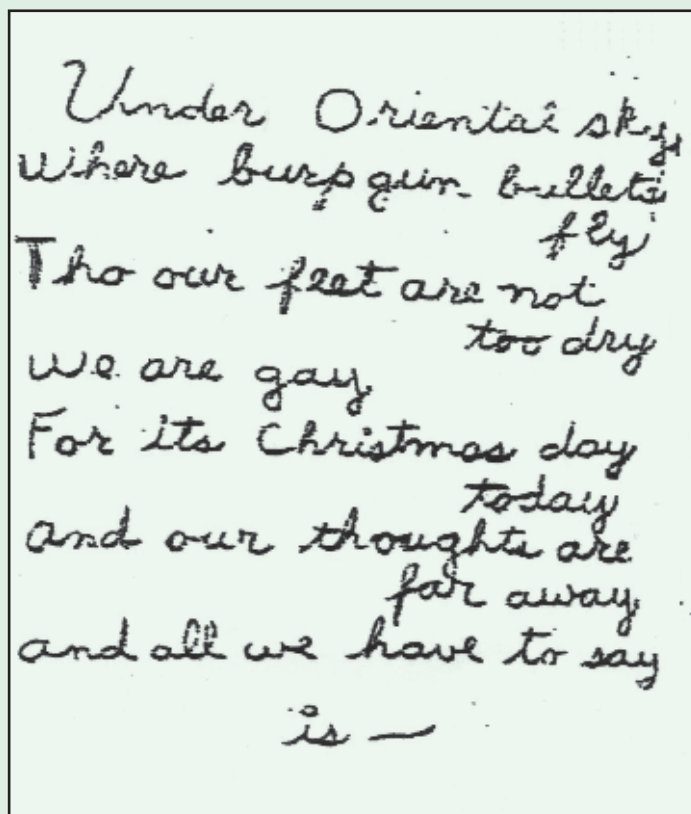 Under Oriental sky,
where burpgun bullets
fly
Tho our feet are not
too dry
we are gay
For its Christmas day
today
and our thoughts are
far away
and all we have to say
is —